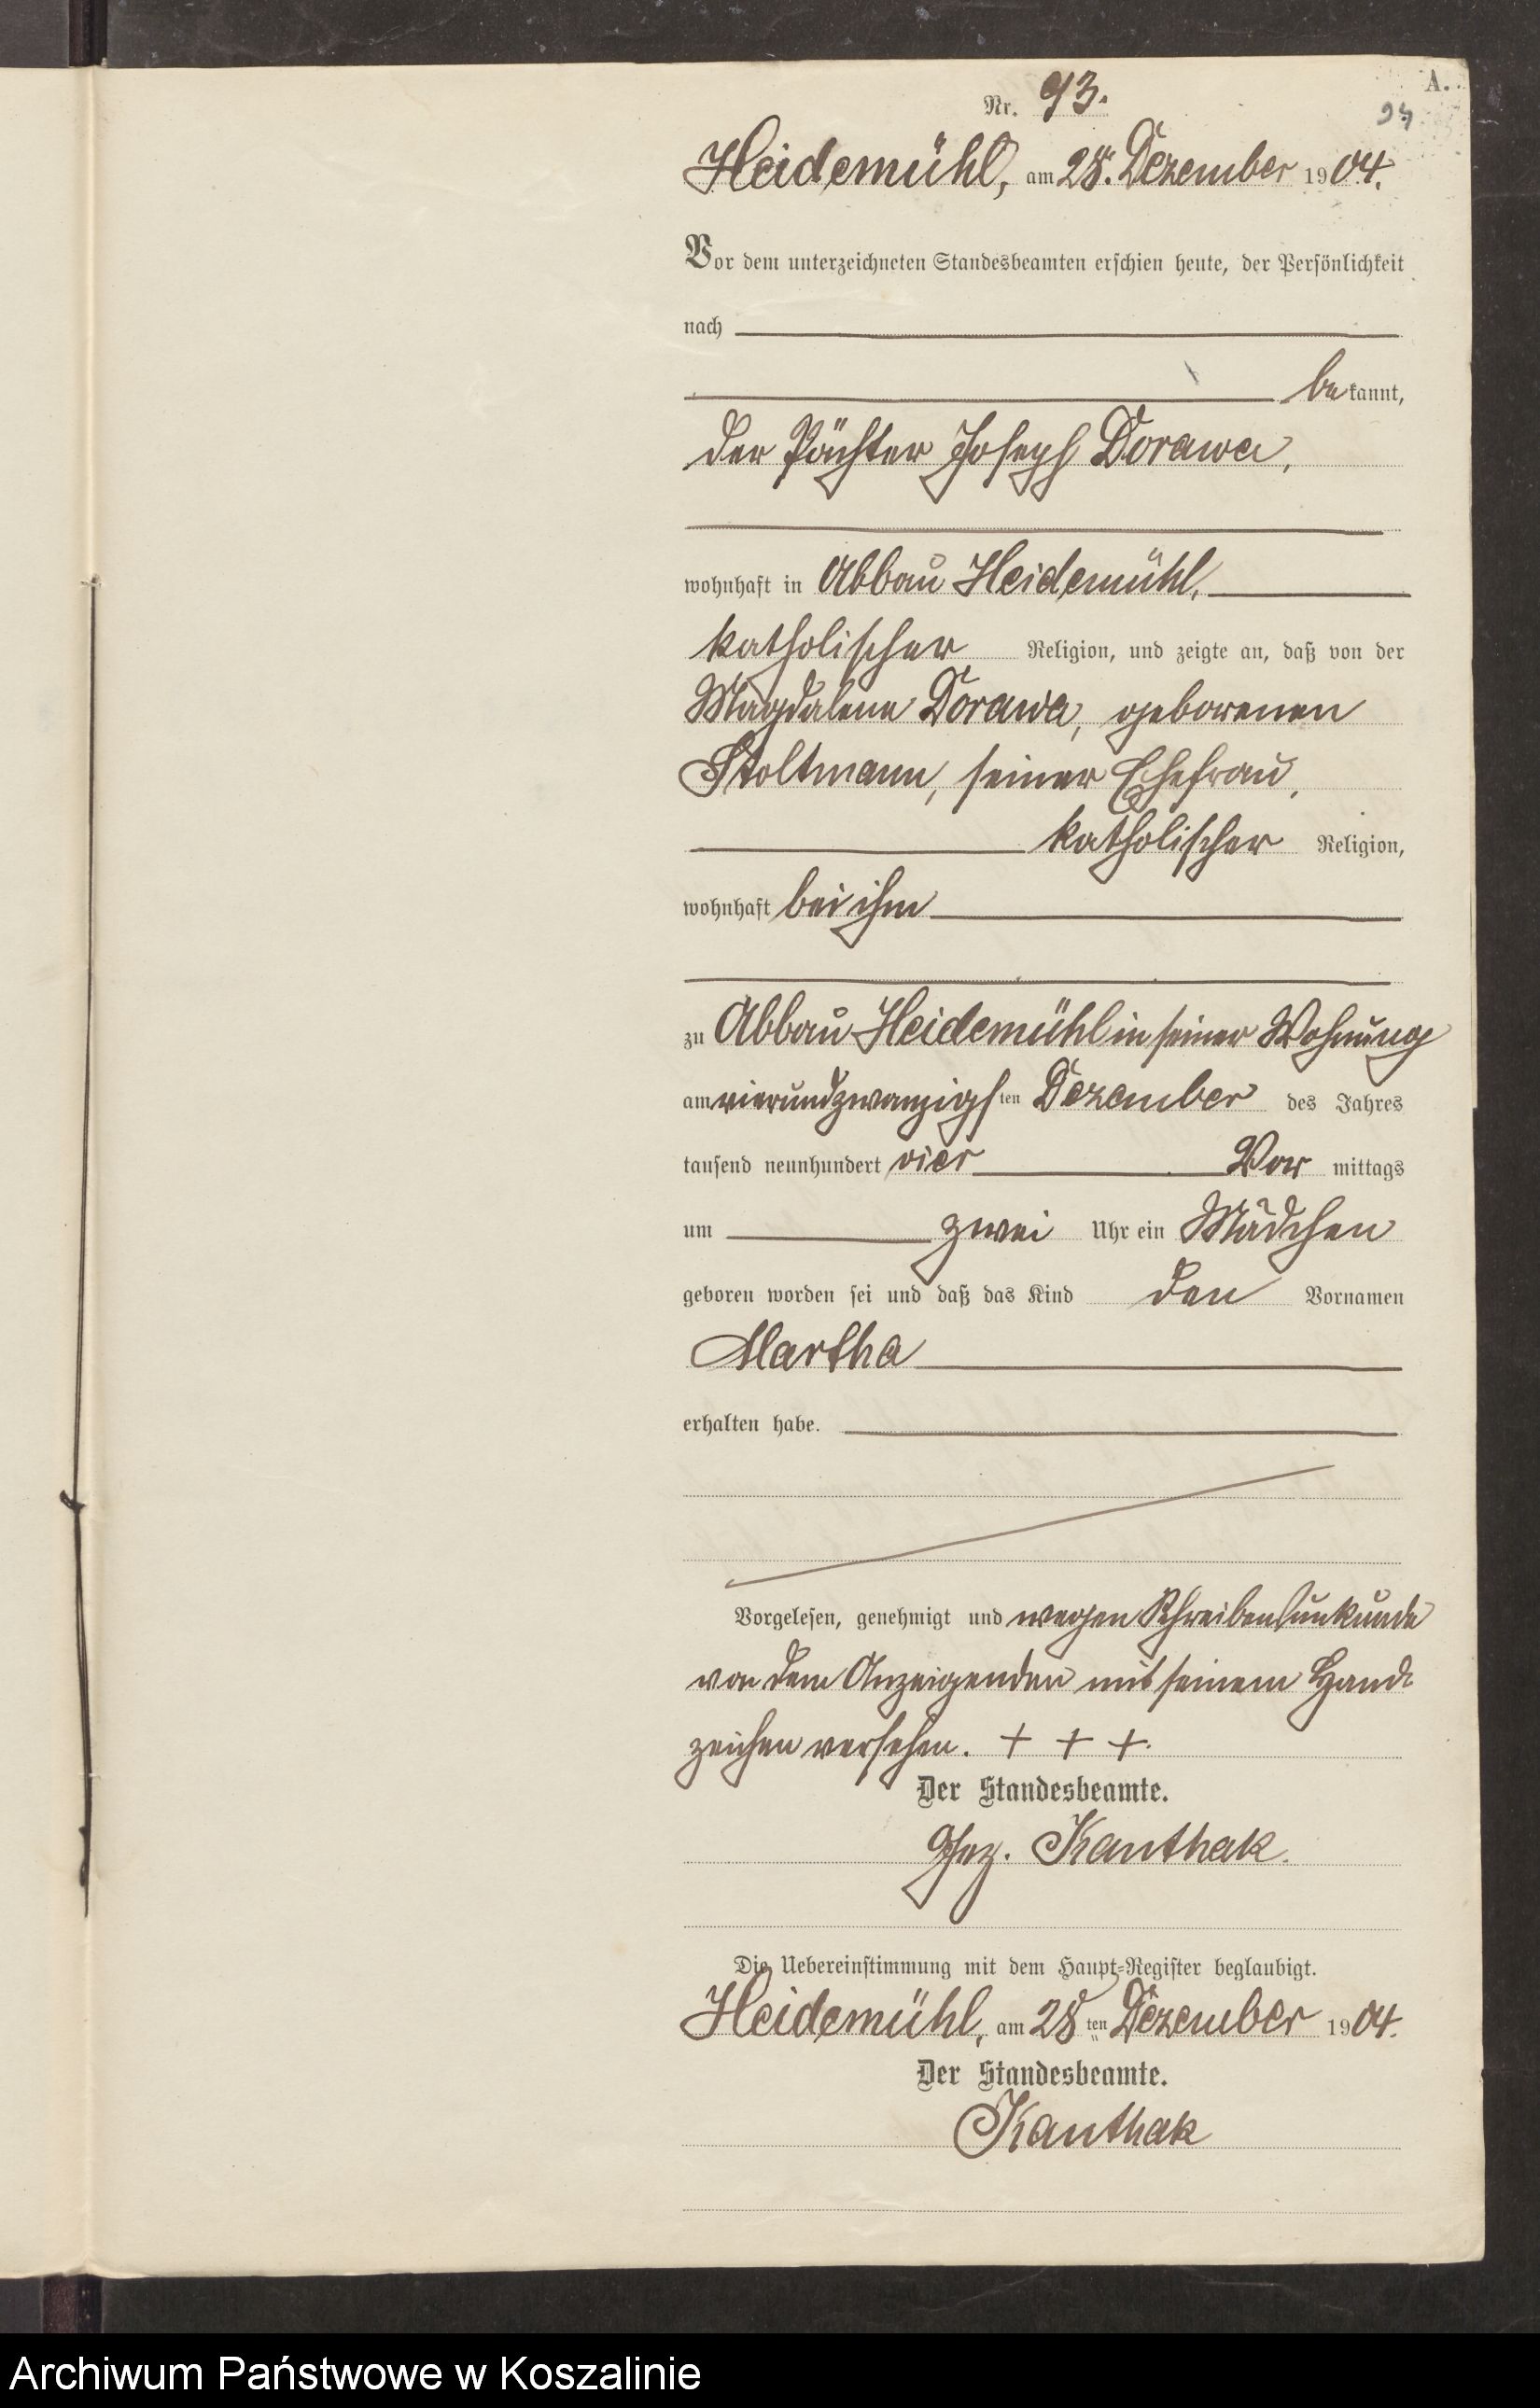 A.
Nr. 93.
94
Heidemühl, am 28. Dezember 1904.
Vor dem unterzeichneten Standesbeamten erschien heute, der Persönlichkeit
nach
bekannt,
der Pächter Joseph Dorawa,
wohnhaft in Abbau Heidemühl,
katholischer Religion, und zeigte an, daß von der
Magdalena Dorawa, geborenen
Stoltmann, seiner Ehefrau,
katholischer Religion,
wohnhaft bei ihm
zu Abbau Heidemühl in seiner Wohnung
am vierundzwanzigsten Dezember des Jahres
tausend neunhundert vier Vormittags
um zwei Uhr ein Mädchen
geboren worden sei und daß das Kind den Vornamen
Martha
erhalten habe.
Vorgelesen, genehmigt und wegen Schreibensunkunde
von dem Anzeigenden mit seinem Hand-
zeichen versehen. + + +.
Der Standesbeamte.
Gez. Kanthak.
Die Uebereinstimmung mit dem Haupt-Register beglaubigt.
Heidemühl, am 28ten Dezember 1904.
Der Standesbeamte.
Kanthak
Archiwum Państwowe w Koszalinie